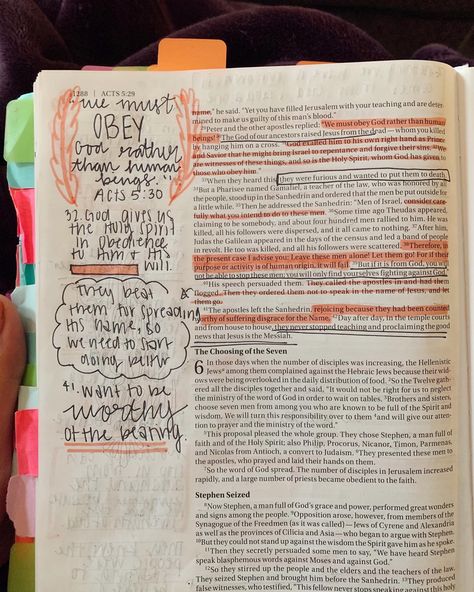 1288 | ACTS 5:29
"we must
OBEY
God rather
than human
beings."
ACTS 5:30
32. God gives us
the Holy Spirit
in obedience
to Him & His
will
They beat
them for spreading
His name, so
we need to start
doing better
41. want to be
worthy
of the beating.
name," he said. "Yet you have filled Jerusalem with your teaching and are deter-
mined to make us guilty of this man's blood."
29Peter and the other apostles replied: "We must obey God rather than human
beings! 30The God of our ancestors raised Jesus from the dead — whom you killed
by hanging him on a cross. 31God exalted him to his own right hand as Prince
and Savior that he might bring Israel to repentance and forgive their sins. 32We
are witnesses of these things, and so is the Holy Spirit, whom God has given to
those who obey him."
33When they heard this, they were furious and wanted to put them to death.
34But a Pharisee named Gamaliel, a teacher of the law, who was honored by all
the people, stood up in the Sanhedrin and ordered that the men be put outside for
a little while. 35Then he addressed the Sanhedrin: "Men of Israel, consider care-
fully what you intend to do to these men. 36Some time ago Theudas appeared,
claiming to be somebody, and about four hundred men rallied to him. He was
killed, all his followers were dispersed, and it all came to nothing. 37After him,
Judas the Galilean appeared in the days of the census and led a band of people
in revolt. He too was killed, and all his followers were scattered. 38Therefore, in
the present case I advise you: Leave these men alone! Let them go! For if their
purpose or activity is of human origin, it will fail. 39But if it is from God, you will
not be able to stop these men; you will only find yourselves fighting against God."
40His speech persuaded them. They called the apostles in and had them
flogged. Then they ordered them not to speak in the name of Jesus, and let
them go.
41The apostles left the Sanhedrin, rejoicing because they had been counted
worthy of suffering disgrace for the Name. 42Day after day, in the temple courts
and from house to house, they never stopped teaching and proclaiming the good
news that Jesus is the Messiah.
The Choosing of the Seven
6 In those days when the number of disciples was increasing, the Hellenistic
Jews among them complained against the Hebraic Jews because their wid-
ows were being overlooked in the daily distribution of food. 2So the Twelve gath-
ered all the disciples together and said, "It would not be right for us to neglect
the ministry of the word of God in order to wait on tables. 3Brothers and sisters,
choose seven men from among you who are known to be full of the Spirit and
wisdom. We will turn this responsibility over to them 4and will give our atten-
tion to prayer and the ministry of the word."
5This proposal pleased the whole group. They chose Stephen, a man full of
faith and of the Holy Spirit; also Philip, Procorus, Nicanor, Timon, Parmenas,
and Nicolas from Antioch, a convert to Judaism. 6They presented these men to
the apostles, who prayed and laid their hands on them.
7So the word of God spread. The number of disciples in Jerusalem increased
rapidly, and a large number of priests became obedient to the faith.
Stephen Seized
8Now Stephen, a man full of God's grace and power, performed great wonders
and signs among the people. 9Opposition arose, however, from members of the
Synagogue of the Freedmen (as it was called) — Jews of Cyrene and Alexandria
as well as the provinces of Cilicia and Asia — who began to argue with Stephen.
10But they could not stand up against the wisdom the Spirit gave him as he spoke.
11Then they secretly persuaded some men to say, "We have heard Stephen
speak blasphemous words against Moses and against God."
12So they stirred up the people and the elders and the teachers of the law.
They seized Stephen and brought him before the Sanhedrin. 13They produced
false witnesses, who testified, "This fellow never stops speaking against this